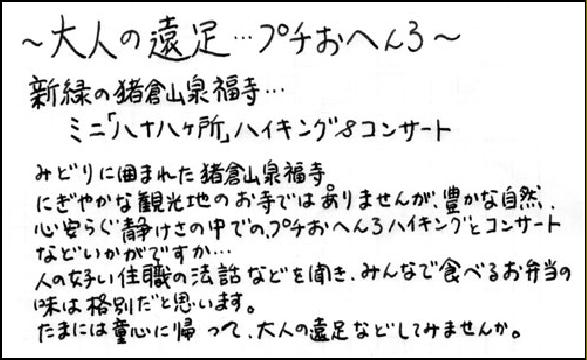 ～大人の遠足…プチおへんろ～
新緑の猪倉山泉福寺…
ミニ「八十八ヶ所」ハイキング&コンサート
みどりに囲まれた猪倉山泉福寺。
にぎやかな観光地のお寺ではありませんが、豊かな自然、
心安らぐ静けさの中での、プチおへんろハイキングとコンサート
などいかがですか…
人の好い住職の法話などを聞き、みんなで食べるお弁当の
味は格別だと思います。
たまには童心に帰って、大人の遠足などしてみませんか。